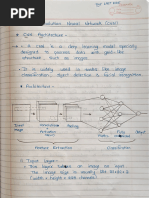 Convolution Neural Network (CNN)
CNN Architecture -
A CNN is a deep learning model specially
designed to process data with grids like
structure, such as images.
It is widely used in tasks like image
classification, object detection & facial recognition
Architecture -
Input
image
Pooling
Fully
Output
Feature Extraction
Classification
1) Input Layer -
This layer takes an image as input
The image size is usually like
(width × height ×